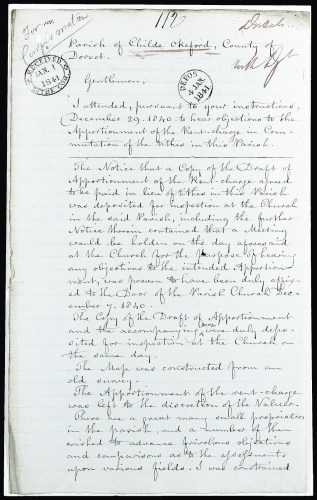 For
Confirmation
112
Dorset
Parish of Childe Okeford, County of
Dorset.
RECEIVED
JAN. 1
1841
TITHE COM
DEPOSD
4 JAN.
1841
Gentlemen,
I attended, pursuant to your instructions,
December 29. 1840. to hear objections to the
Apportionment of the Rent-charge in Com-
mutation of the tithes in this Parish.
The Notice that a Copy of the Draft of
Apportionment of the Rent-charge agreed
to be paid in lieu of tithes in this Parish
was deposited for inspection at the Church
in the said Parish, including the further
Notice therein contained that a Meeting
would be holden on the day aforesaid
at the Church for the purpose of hearing
any objections to the intended Apportion-
ment, was proven to have been duly affix-
ed to the Door of the Parish Church Dec-
ember 7. 1840.
The Copy of the Draft of Apportionment
and the accompanying Map were duly depo-
sited for inspection at the Church on
the same day.
The Map was constructed from an
old survey.
The Apportionment of the rent-charge
was left to the discretion of the Valuer.
There are a great many small proprietors
in the parish, and a number of them
wished to advance frivolous objections
and comparisons as to the assessments
upon various fields. I was constrained